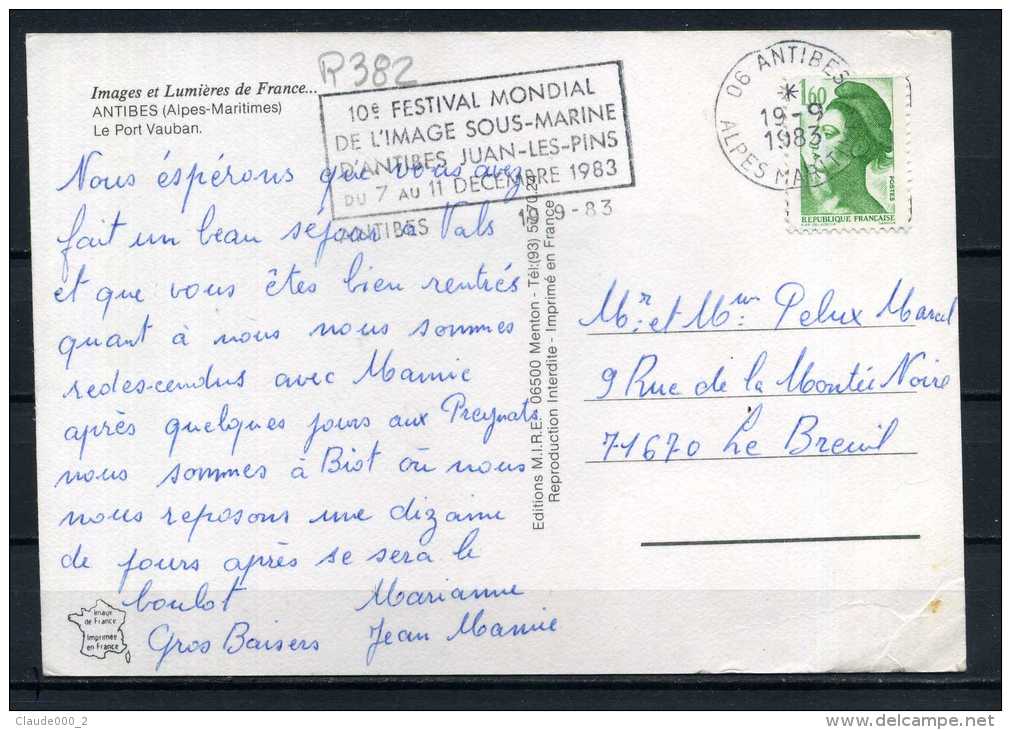 R382
Images et Lumières de France...
ANTIBES (Alpes-Maritimes)
Le Port Vauban.
10e FESTIVAL MONDIAL
DE L'IMAGE SOUS-MARINE
D'ANTIBES JUAN-LES-PINS
DU 7 AU 11 DECEMBRE 1983
ANTIBES 19-9-83
06 ANTIBES
19-9
1983
ALPES MARITIMES
1,60
POSTES
REPUBLIQUE FRANÇAISE
Nous éspérons que vous avez
fait un beau séjour à Vals
et que vous êtes bien rentrés
quant à nous nous sommes
redes-cendus avec Mamie
après quelques jours aux Preynats
nous sommes à Biot où nous
nous reposons une dizaine
de jours après se sera le
boulot Marianne
Gros Baisers Jean Mamie
Editions M.I.R.E. 06500 Menton - Tél.(93)
Reproduction Interdite - Imprimé en France
Mr. et Mme Pelux Marcel
9 Rue de la Montée Noire
71670 Le Breuil
Image
de France
Imprimée
en France
Claude000_2
delcampe.net